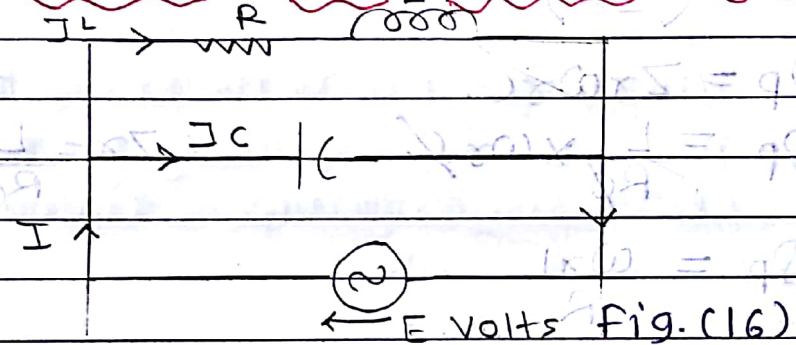 IL R L
IC
I
E volts fig. (16)